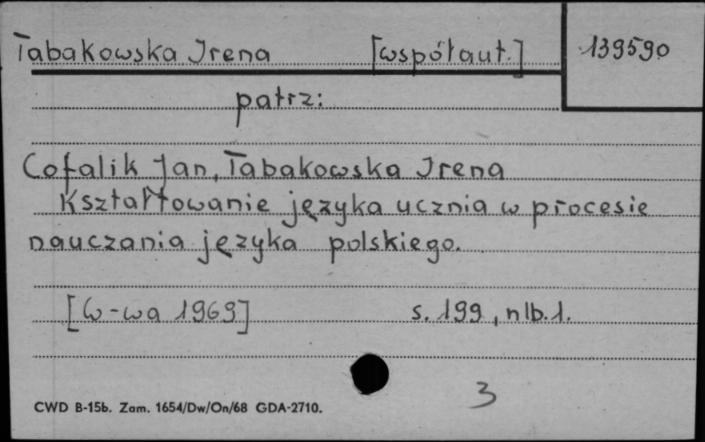 Tabakowska Irena [współaut.] 139590
patrz:
Cofalik Jan, Tabakowska Irena
Kształtowanie języka ucznia w procesie
nauczania języka polskiego.
[W-wa 1969] s. 199, nlb. 1.
3
CWD B-15b. Zam. 1654/Dw/On/68 GDA-2710.